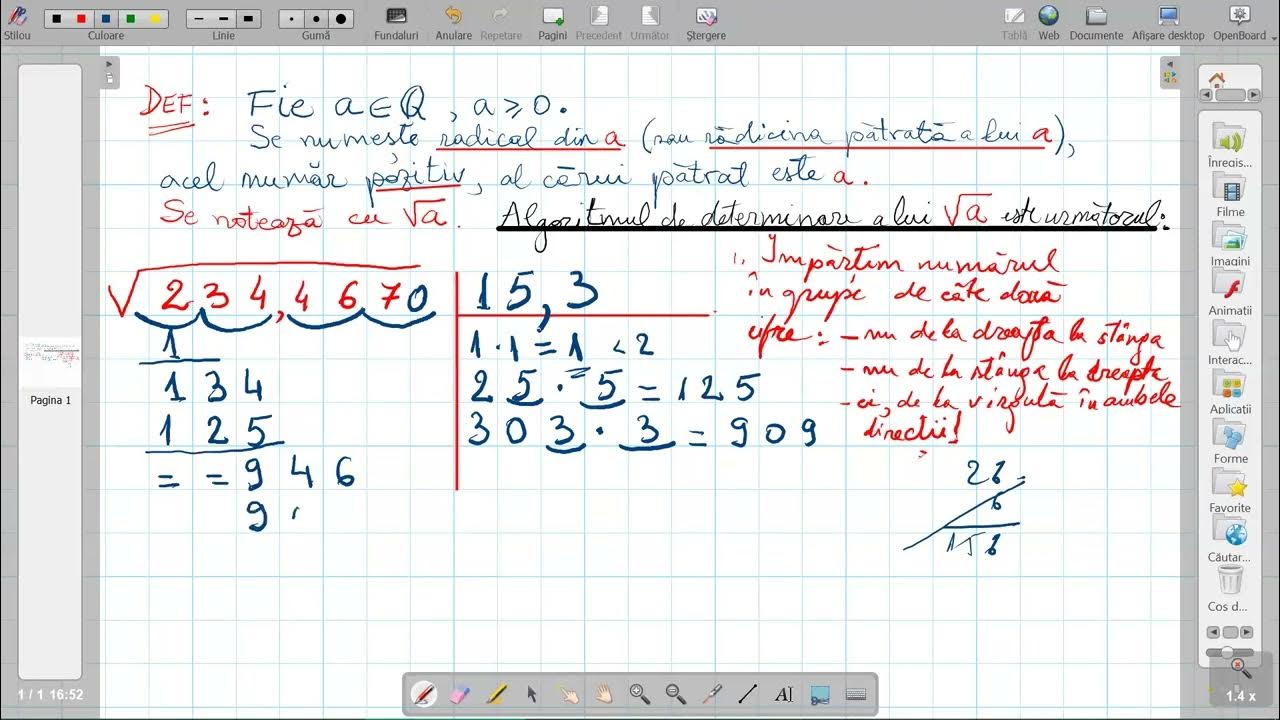 Stilou
Culoare
Linie
Gumă
Fundaluri
Anulare
Repetare
Pagini
Precedent
Următor
Ștergere
Tablă
Web
Documente
Afişare desktop
OpenBoard
DEF: Fie a∈Q, a ⩾ 0.
Se numește radical din a (sau rădăcina pătrată a lui a),
acel număr pozitiv, al cărui pătrat este a.
Se notează cu √a. Algoritmul de determinare a lui √a este următorul:
√234,4670
1
134
125
= = 946
9
15,3
1·1=1 <2
25·5=125
303·3=909
1. Împărțim numărul
în grupe de câte două
cifre: – nu de la dreapta la stânga
– nu de la stânga la dreapta
– ci, de la virgulă în ambele
direcții!
26
6
156
Pagina 1
1 / 1 16:52
Înregis...
Filme
Imagini
Animatii
Interac...
Aplicații
Forme
Favorite
Căutar...
Cos d...
1.4 x